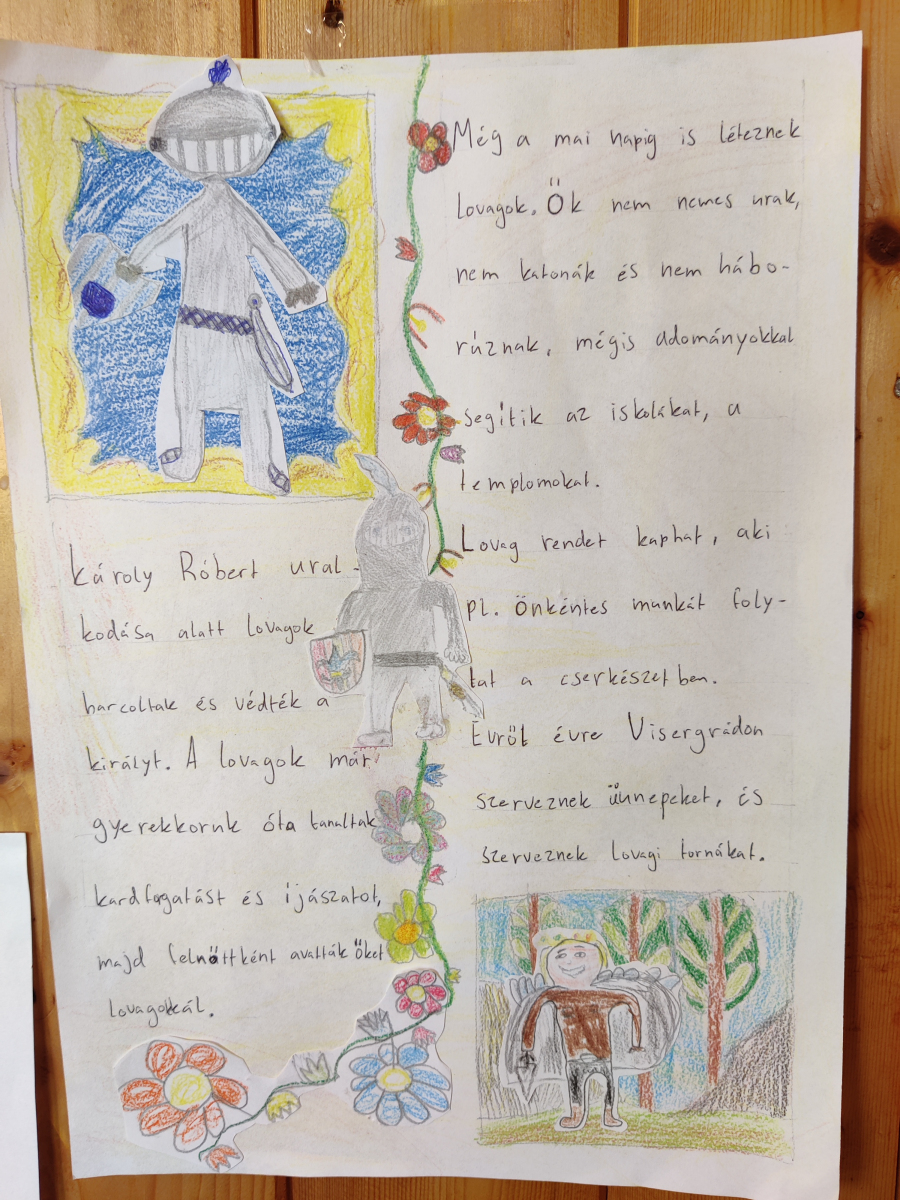 Károly Róbert ural-
kodása alatt lovagok
harcoltak és védték a
királyt. A lovagok már
gyerekkoruk óta tanultak
kardfogatást és íjászatot,
majd felnőttként avatták őket
lovagokkál.
Még a mai napig is léteznek
lovagok. Ők nem nemes urak,
nem katonák és nem hábo-
rúznak, mégis adományokkal
segítik az iskolákat, a
templomokat.
Lovag rendet kaphat, aki
pl. önkéntes munkát foly-
tat a cserkészetben.
Évről évre Visergrádon
szerveznek ünnepeket, és
szerveznek lovagi tornákat.